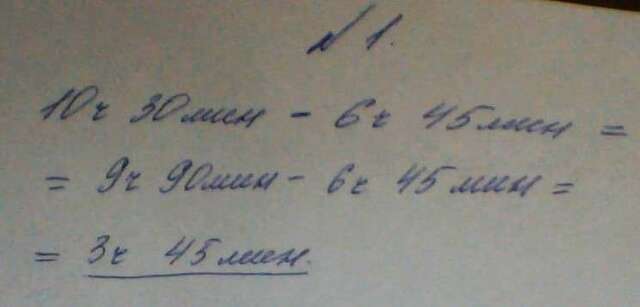 № 1.
10ч 30мин - 6ч 45мин =
= 9ч 90мин - 6ч 45мин =
= 3ч 45мин.